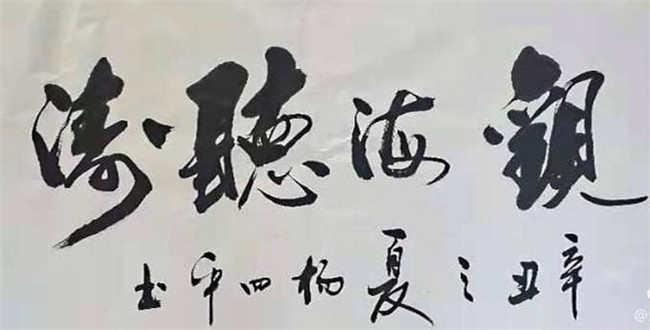 觀海聽濤
辛丑之夏杨四平书
@